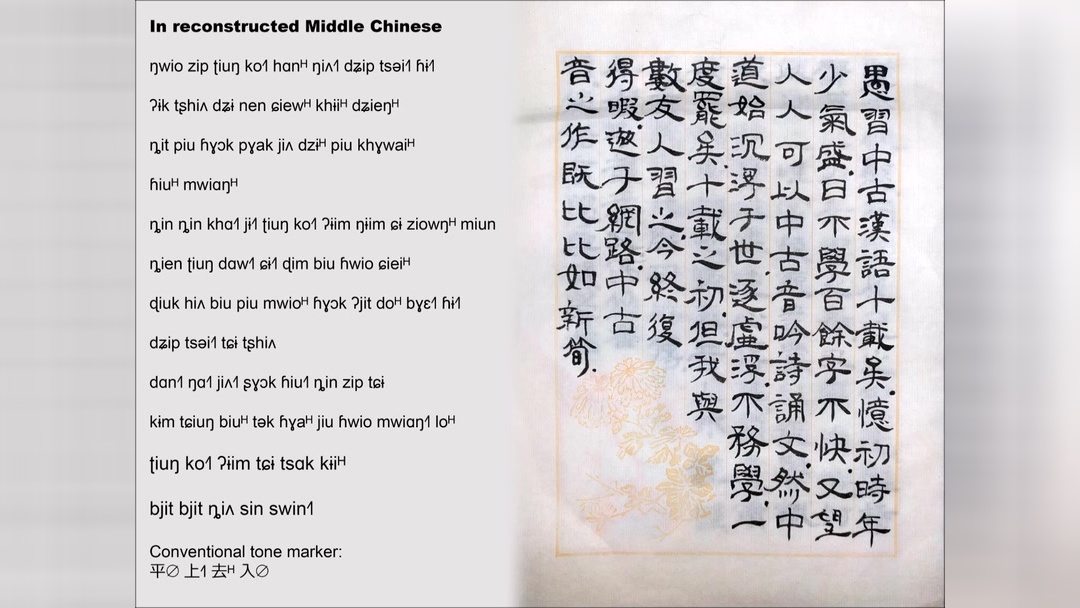 In reconstructed Middle Chinese
ŋwio zip ʈiuŋ ko˦˥ hɑnᴴ ŋiʌ˦˥ dʑip tsəi˦˥ ɦɨ˦˥
ʔɨk tʂhiʌ dʑɨ nen ɕiewᴴ khɨiᴴ dʑieŋᴴ
ȵit piu ɦɣɔk pɣak jiʌ dzɨᴴ piu khɣwaiᴴ
ɦiuᴴ mwiɑŋᴴ
ȵin ȵin khɑ˦˥ jɨ˦˥ ʈiuŋ ko˦˥ ʔɨim ŋɨim ɕɨ ziowŋᴴ miun
ȵien ʈiuŋ dɑw˦˥ ɕɨ˦˥ ɖim biu ɦwio ɕieiᴴ
ɖiuk hiʌ biu piu mwioᴴ ɦɣɔk ʔjit doᴴ bɣɛ˦˥ ɦɨ˦˥
dʑip tsəi˦˥ tɕɨ tʂhiʌ
dɑn˦˥ ŋɑ˦˥ jiʌ˦˥ ʂɣɔk ɦiu˦˥ ȵin zip tɕɨ
kɨm tɕiuŋ biuᴴ tək ɦɣaᴴ jiu ɦwio mwiɑŋ˦˥ loᴴ
ʈiuŋ ko˦˥ ʔɨim tɕɨ tsɑk kɨiᴴ
bjit bjit ȵiʌ sin swin˦˥
Conventional tone marker:
平∅ 上˦˥ 去ᴴ 入∅
愚習中古漢語十載矣憶初時年
少氣盛日不學百餘字不快又望
人人可以中古音吟詩誦文然中
道始沉浮于世逐虛浮不務學一
度罷矣十載之初但我與
數友人習之今終復
得暇遨于網路中古
音之作既比比如新筍